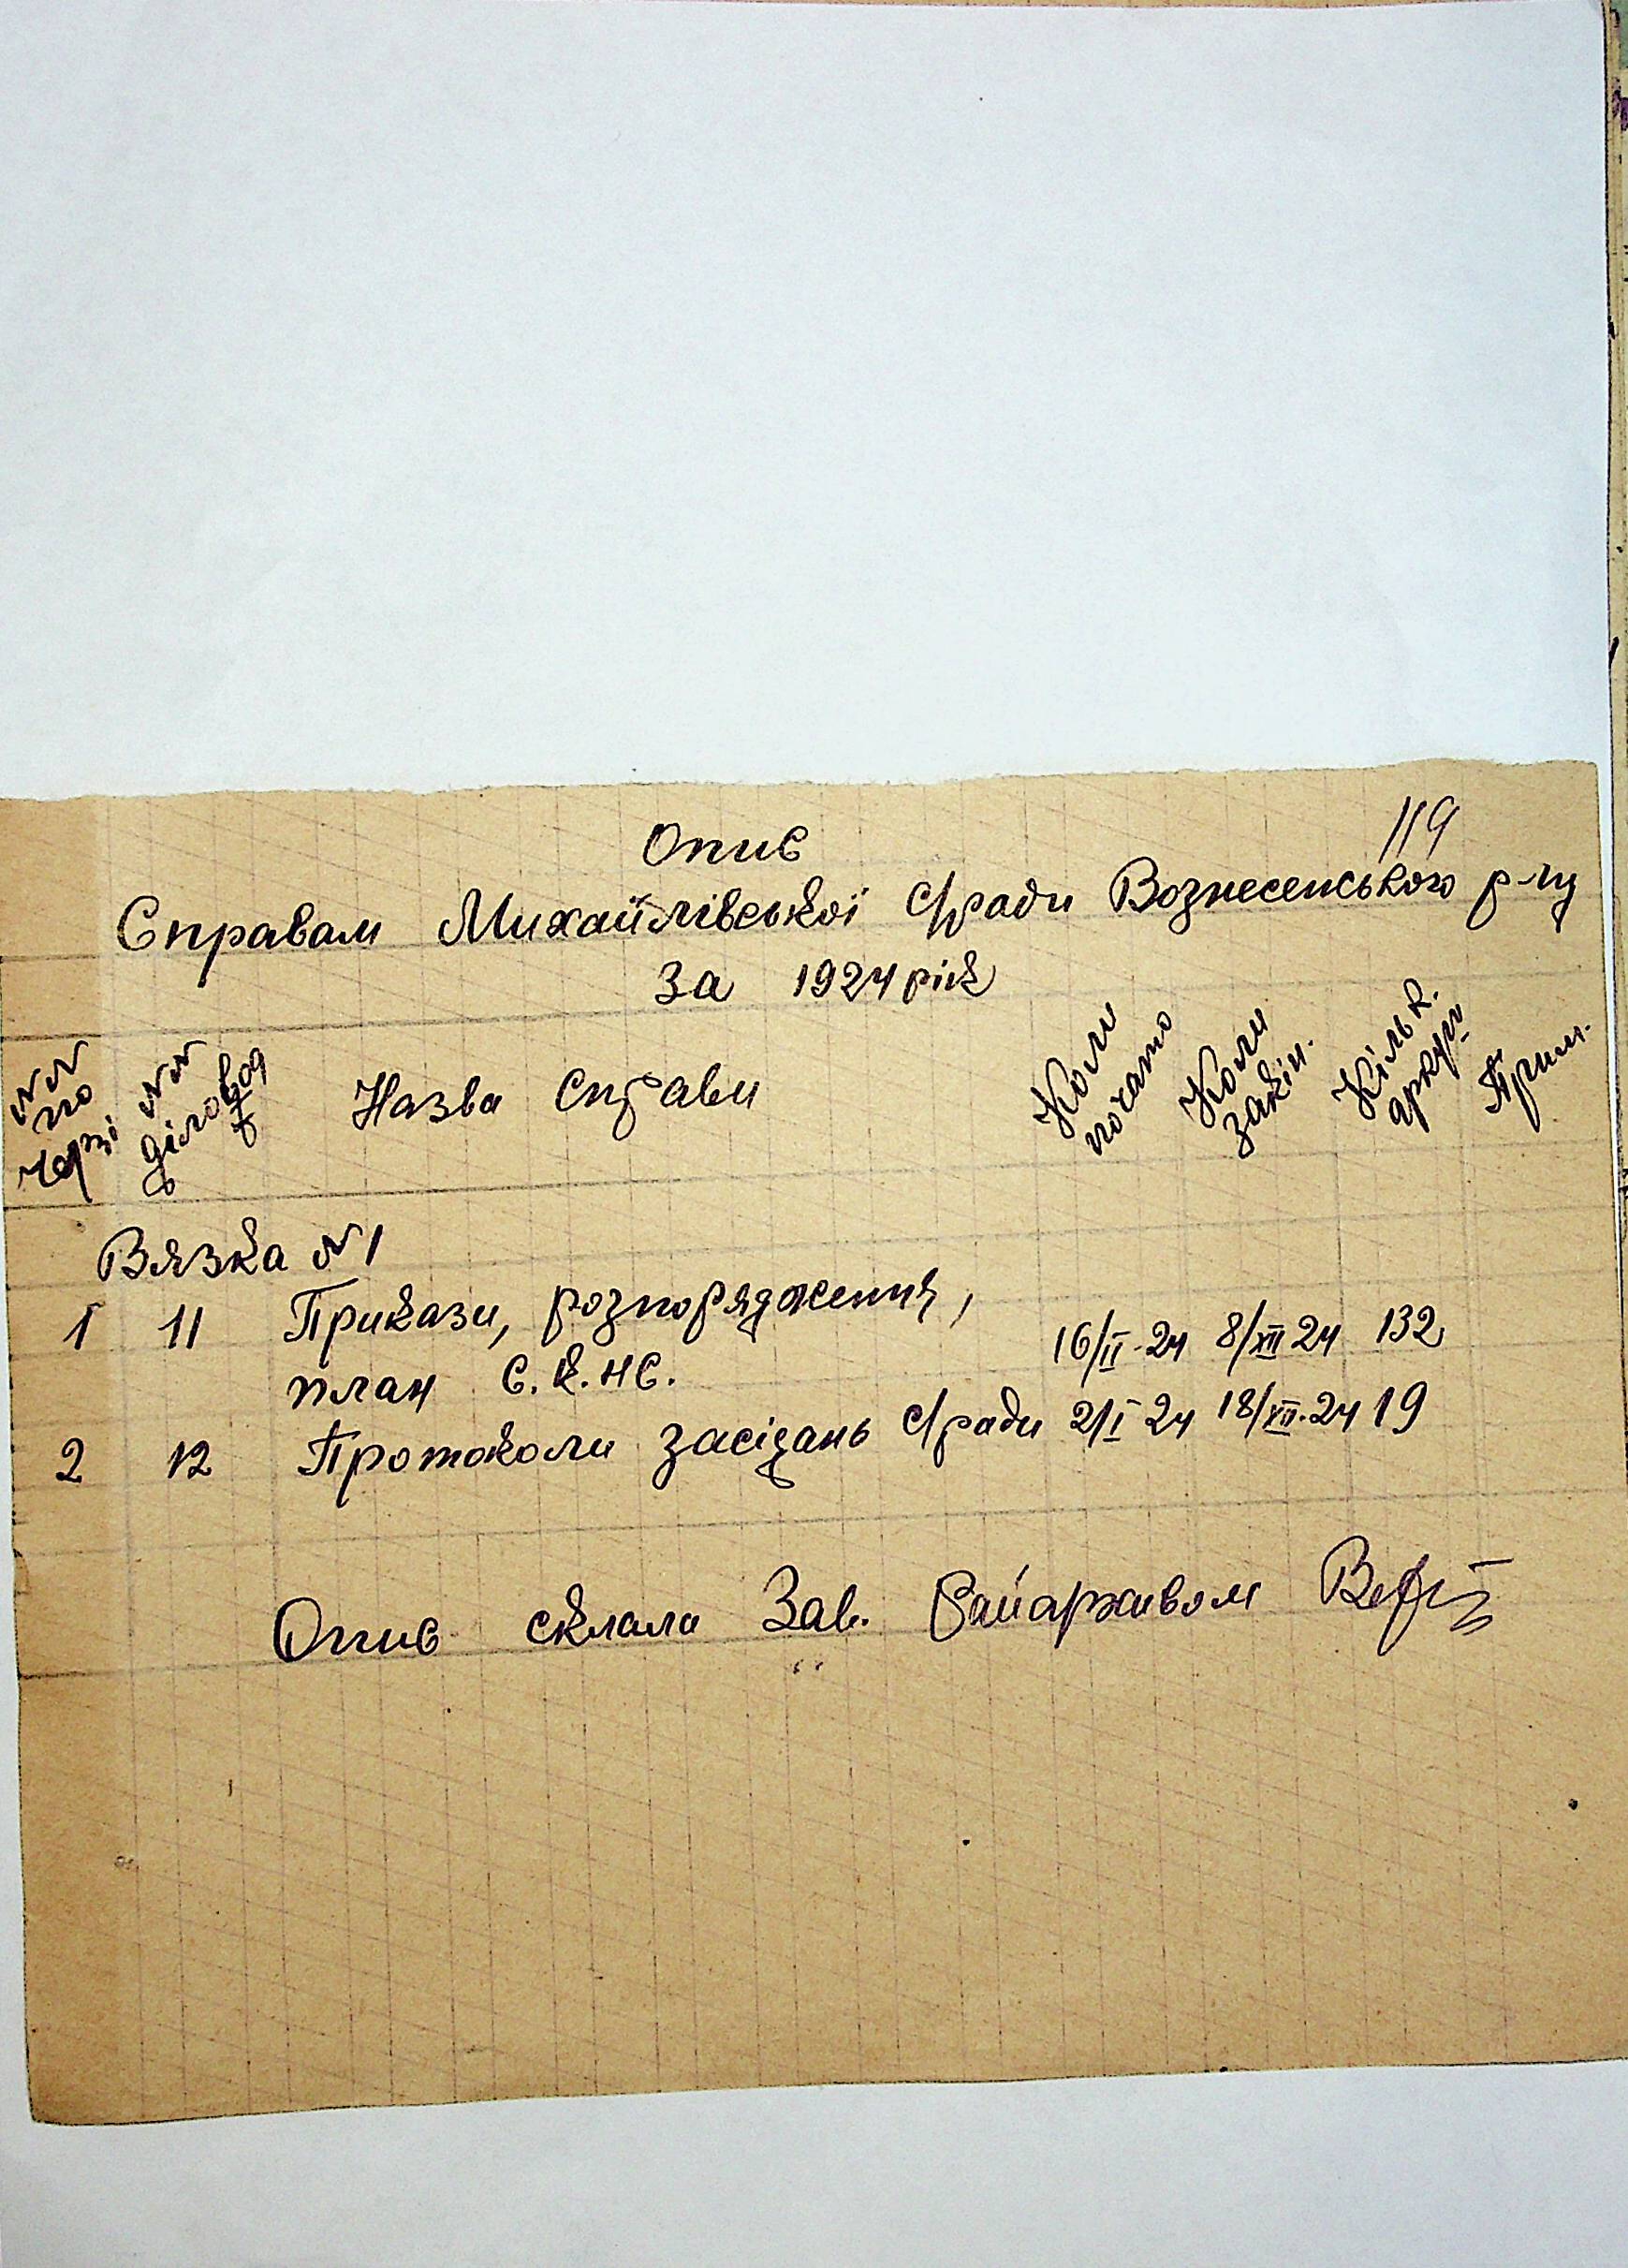 119
Опис
Справам Михайлівської с/ради Вознесенського р-ну
за 1924 рік
NN по черзі
NN діловод
Назва справи
Коли почато
Коли закін.
Кільк. аркуш
Прим.
Вязка N1
1 11 Прикази, розпорядження,
план С.К.НС. 16/II-24 8/XII 24 132
2 12 Протоколи засідань с/ради 2/I 24 18/XII-24 19
Опис склала Зав. Райархивом